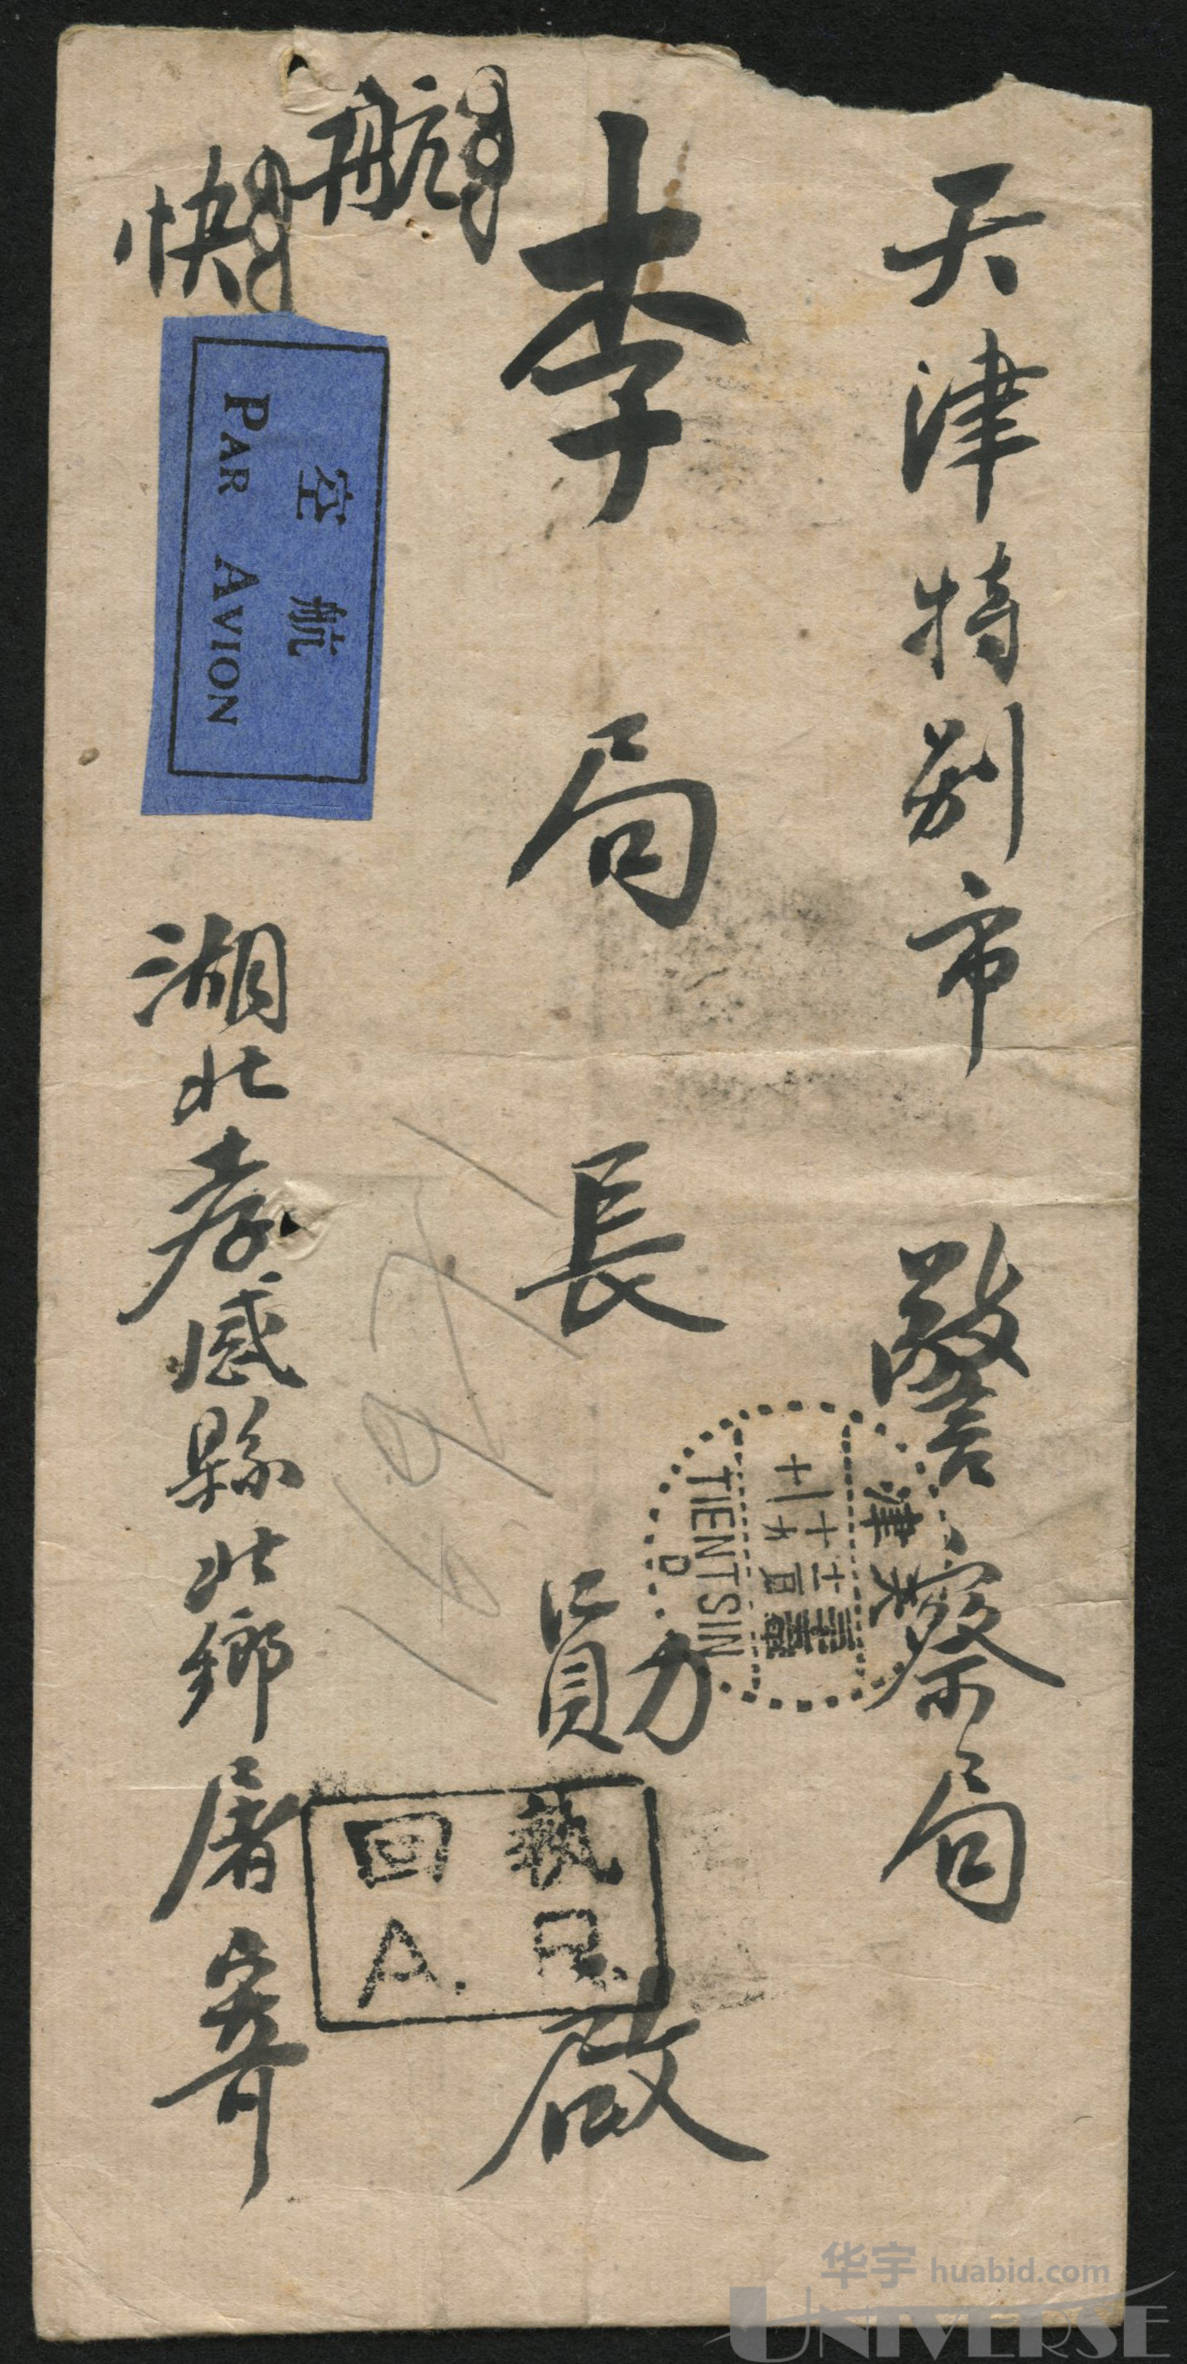 天津特别市 警察局
李局長勛啟
航
快
航空
PAR AVION
湖北孝感縣北鄉屠寄
天津
TIENTSIN
D
回執
A. R.
华宇 huabid.com
UNIVERSE